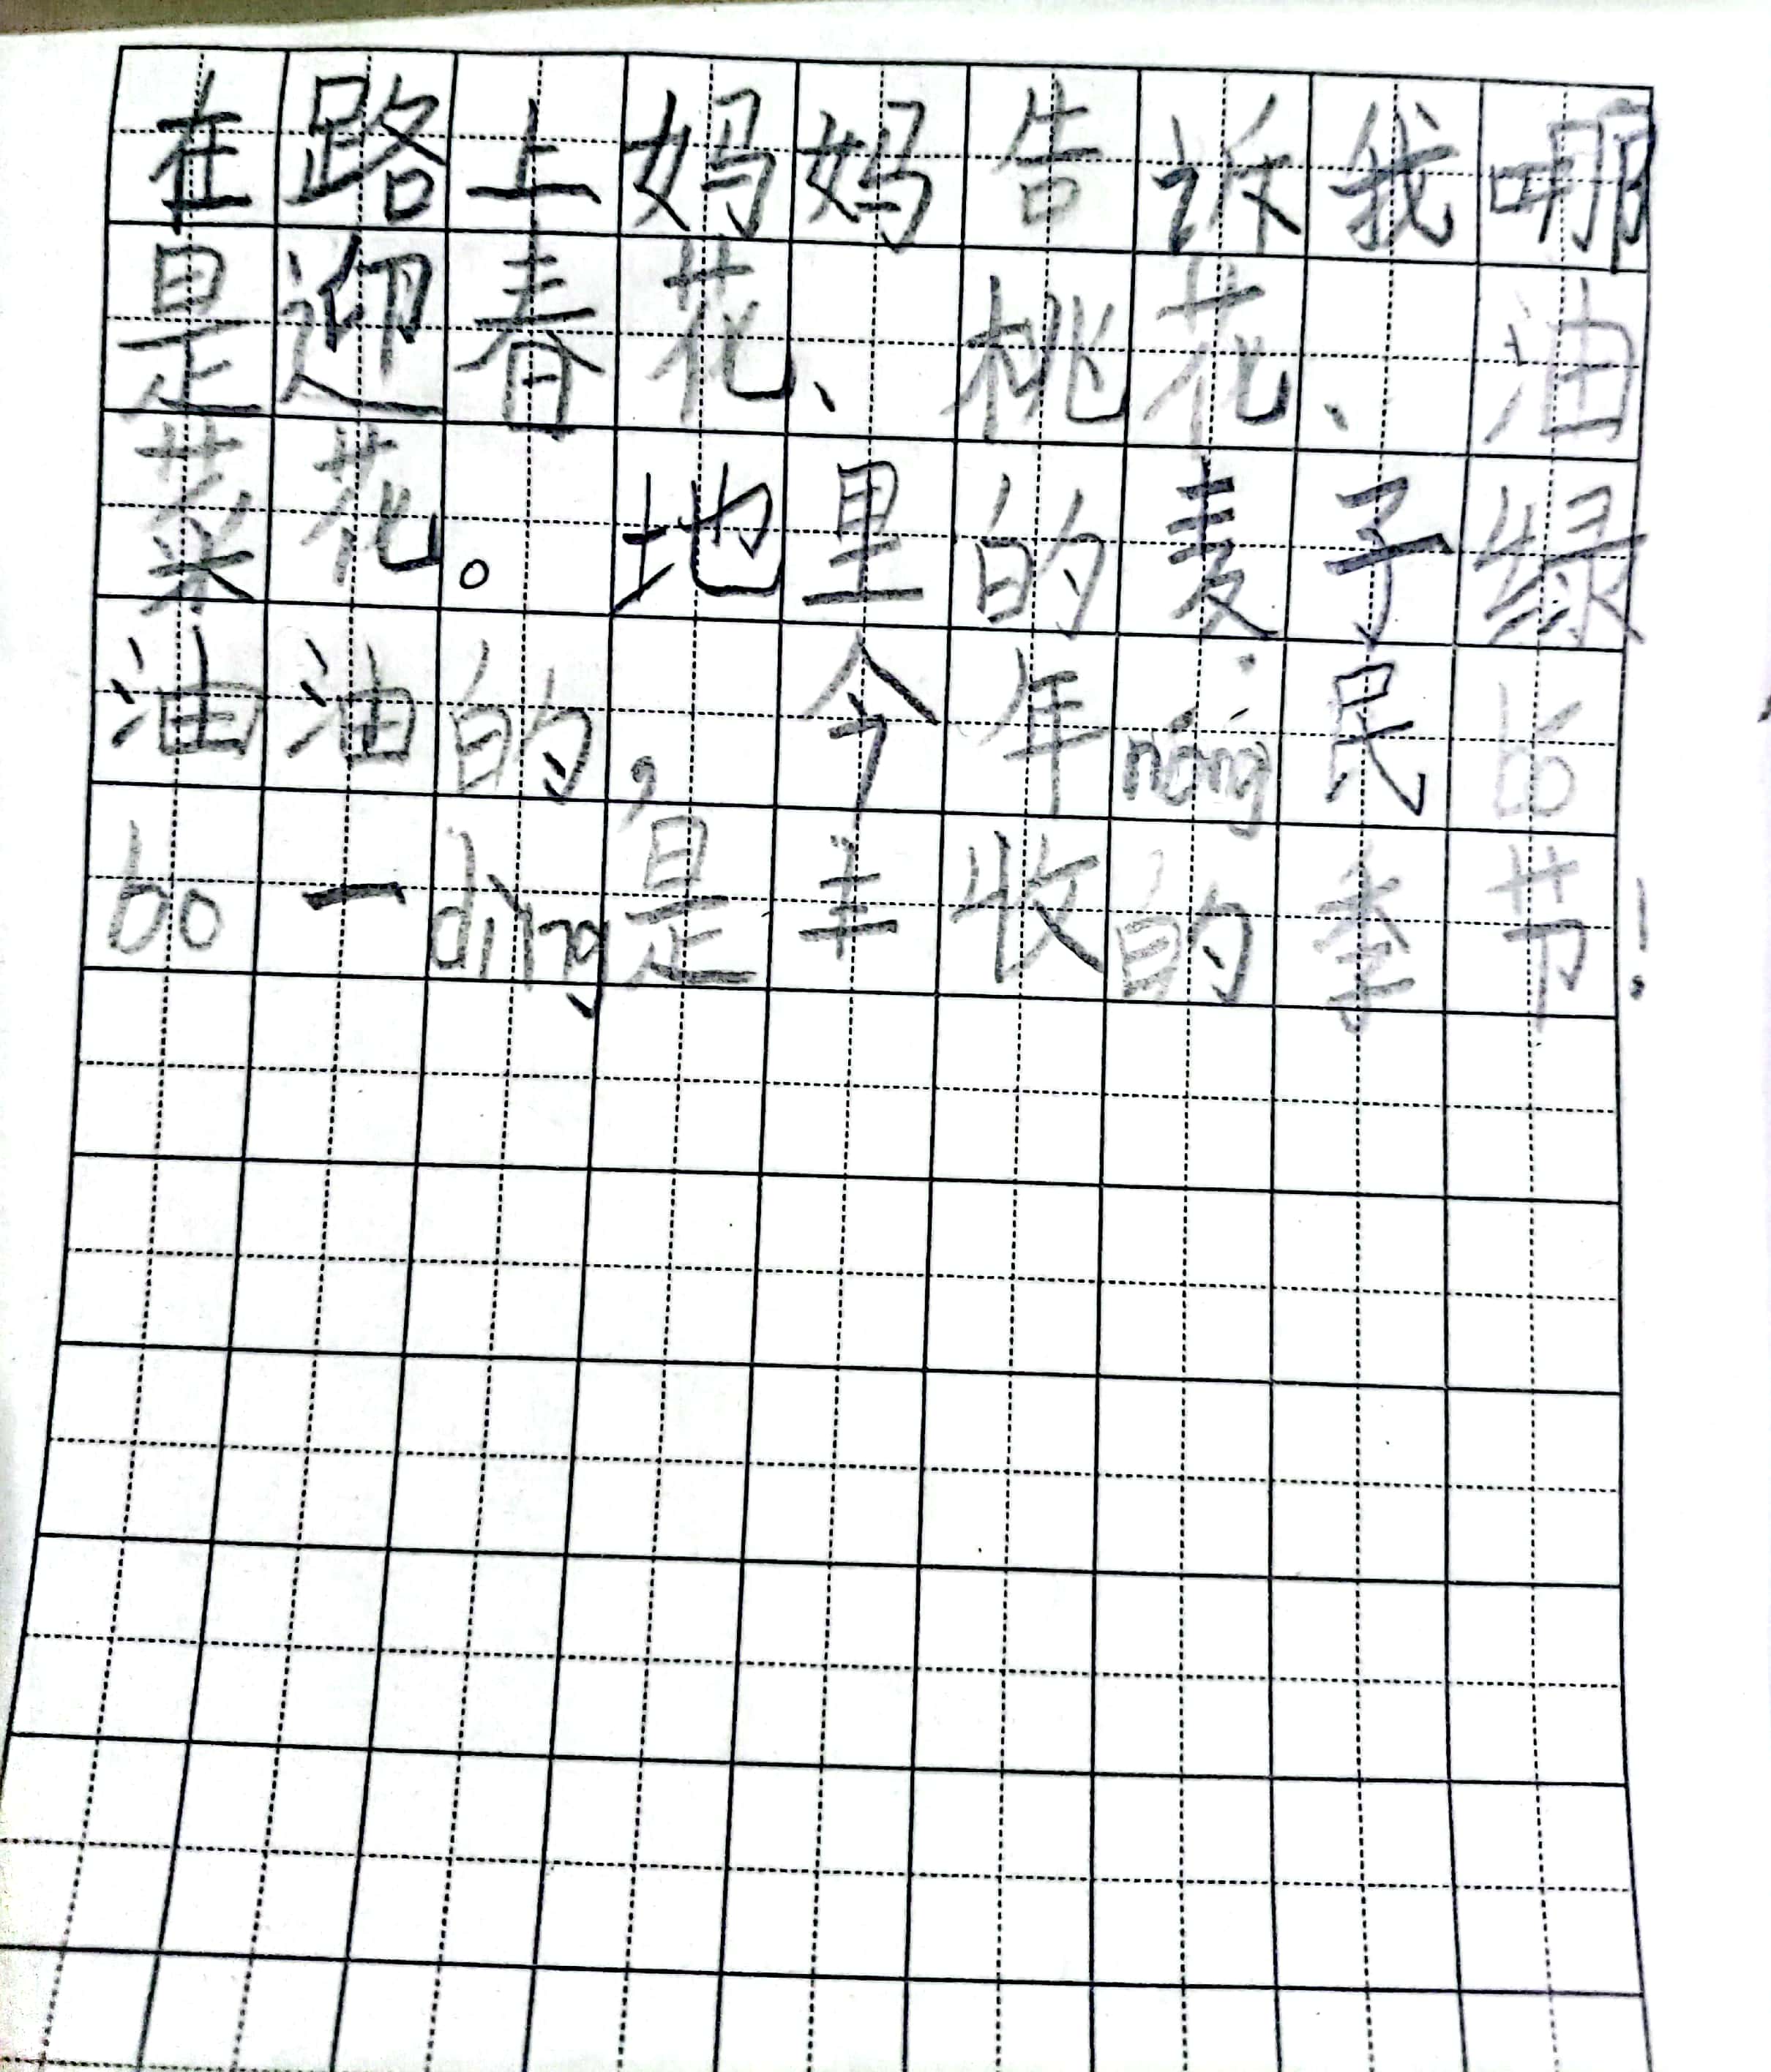 在路上妈妈告诉我哪
是迎春花、桃花、油
菜花。地里的麦子绿
油油的，今年nóng民bó
bo一dìng是丰收的季节！